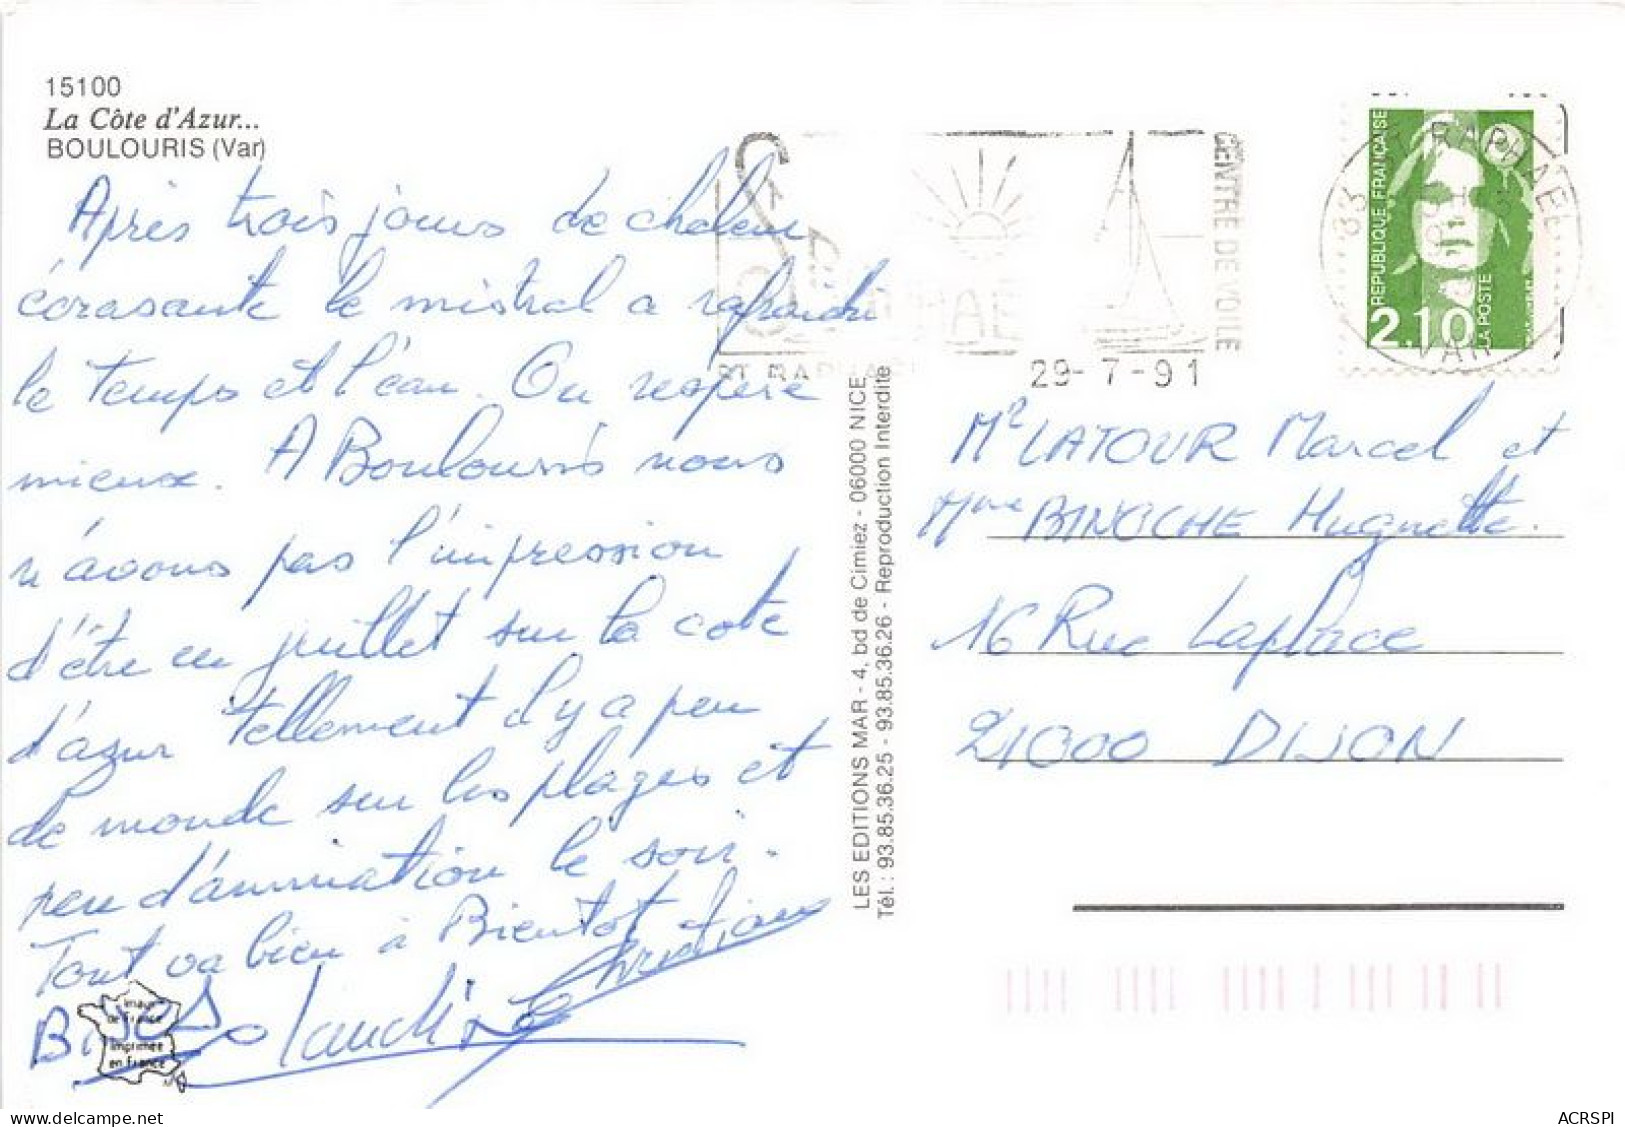 15100
La Côte d'Azur...
BOULOURIS (Var)
Après trois jours de chaleur
écrasante le mistral a rafraichi
le temps et l'eau. On respire
mieux. A Boulouris nous
n'avons pas l'impression
d'être en juillet sur la cote
d'azur tellement il y a peu
de monde sur les plages et
peu d'animation le soir.
Tout va bien à Bientot
Christian
Claudine
Image
de France
Imprimée
en France
LES EDITIONS MAR - 4, bd de Cimiez - 06000 NICE
Tél. : 93.85.36.25 - 93.85.36.26 - Reproduction Interdite
CENTRE DE VOILE
29-7-91
83 RAPHAEL
VAR
REPUBLIQUE FRANÇAISE
2,10
LA POSTE
Mr LATOUR Marcel et
Mme BINOCHE Huguette.
16 Rue Laplace
21000 DIJON
delcampe.net
ACRSPI